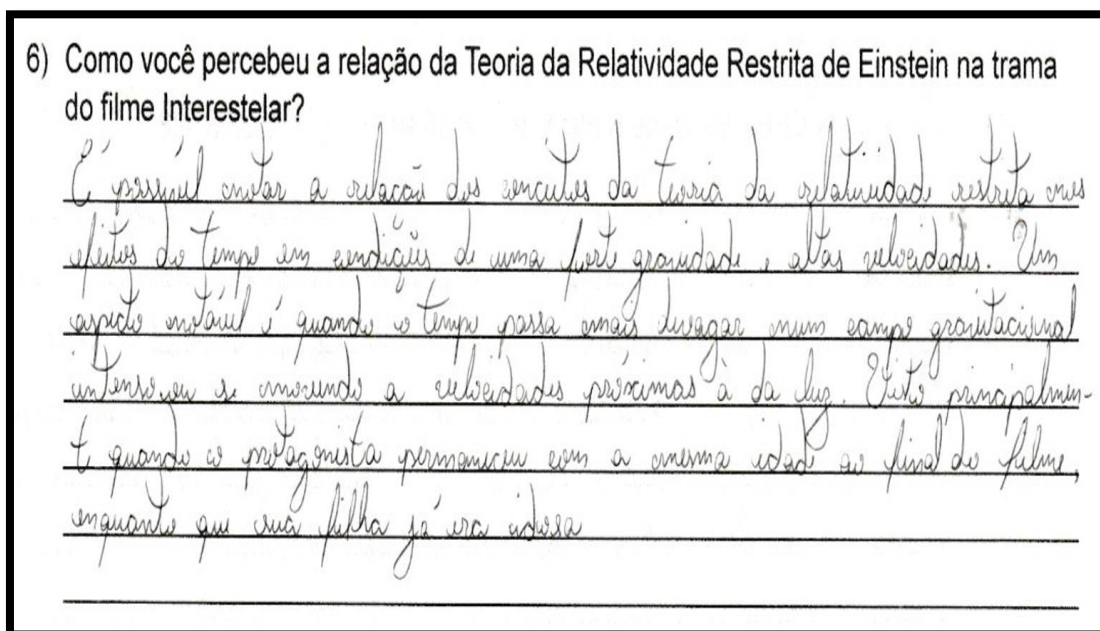 6) Como você percebeu a relação da Teoria da Relatividade Restrita de Einstein na trama
do filme Interestelar?
É possível notar a relação dos conceitos da teoria da relatividade restrita nos
efeitos do tempo em condições de uma forte gravidade e altas velocidades. Um
aspecto notável é quando o tempo passa mais devagar num campo gravitacional
intenso ou se movendo a velocidades próximas à da luz. Visto principalmen-
te quando o protagonista permaneceu com a mesma idade ao final do filme,
enquanto que sua filha já era idosa